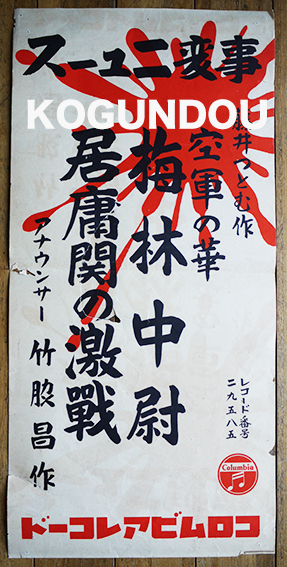 事変ニュース
KOGUNDOU
藤井つとむ作
空軍の華
梅林中尉
居庸関の激戰
アナウンサー 竹脇昌作
レコード番号
二九五八五
Columbia
コロムビアレコード